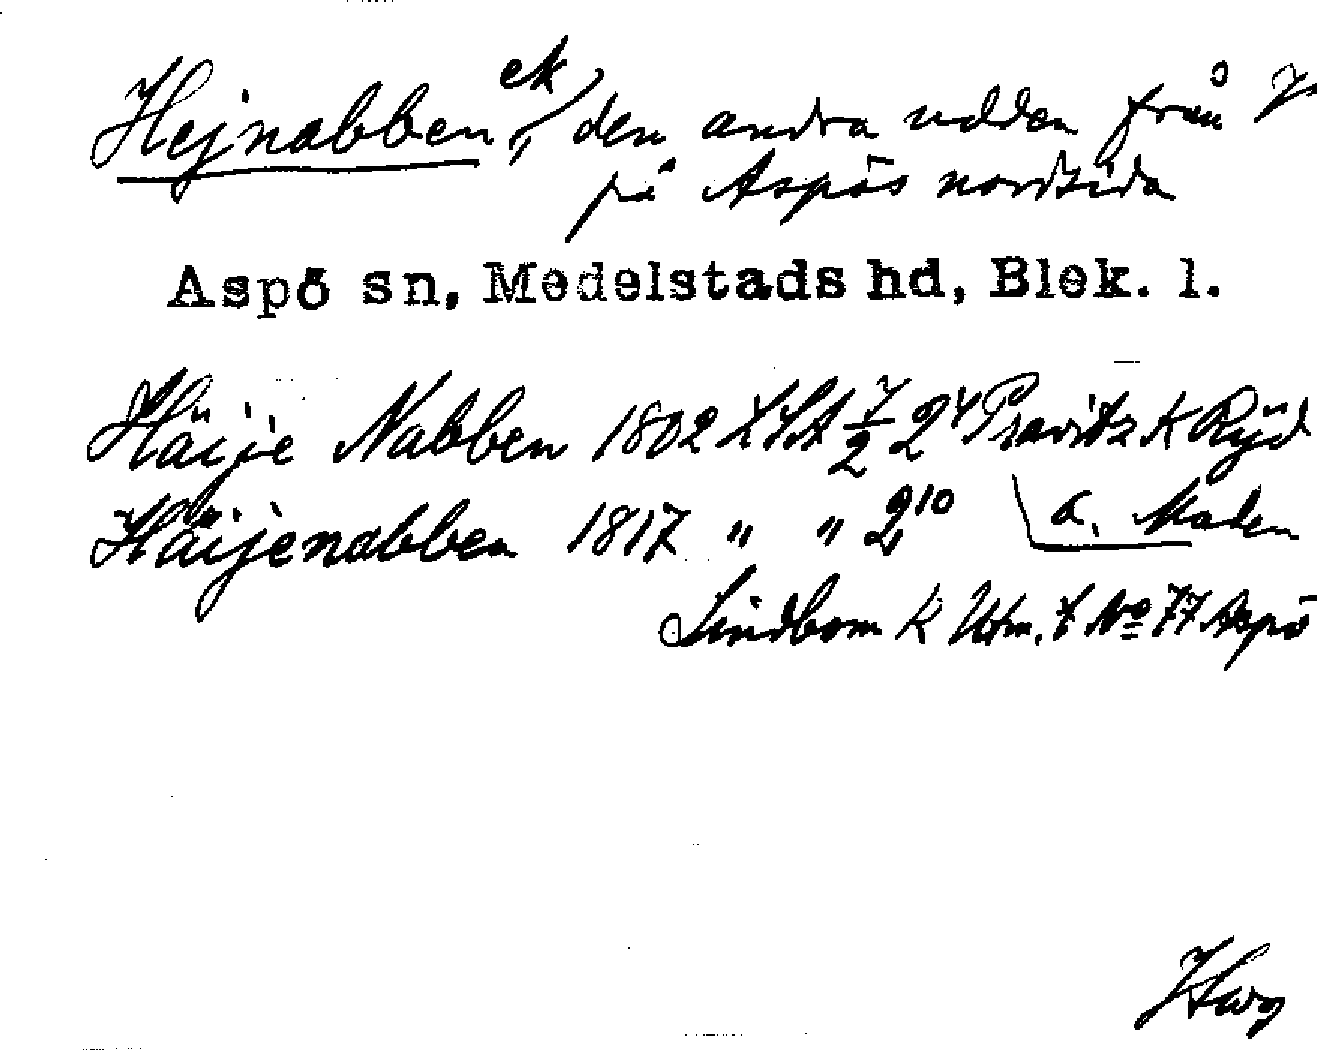 Hejnabben, ek den andra udden från
på Aspös nordsida
Aspö sn, Medelstads hd, Blek. l.
Häije Nabben 1802 LSA 7/2 2 K Ryd
Häijenabben 1817 " " 2 10 a. Maden
Lindbom K Utm. No 77 Aspö